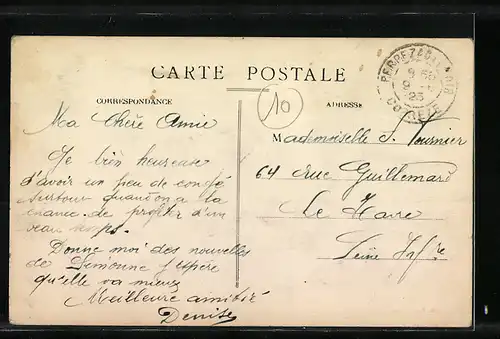 CARTE POSTALE
CORRESPONDANCE
ADRESSE
10
CORREZE
Ma Chère Amie
Je bien heureuse
d'avoir un peu de congé
surtout quand on a la
chance de profiter d'un
beau temps.
Donne moi des nouvelles
de Simonne j'espère
qu'elle va mieux
Meilleure amitié
Denise
Mademoiselle S. Tournier
64 rue Guillemard
Le Havre
Seine Infre